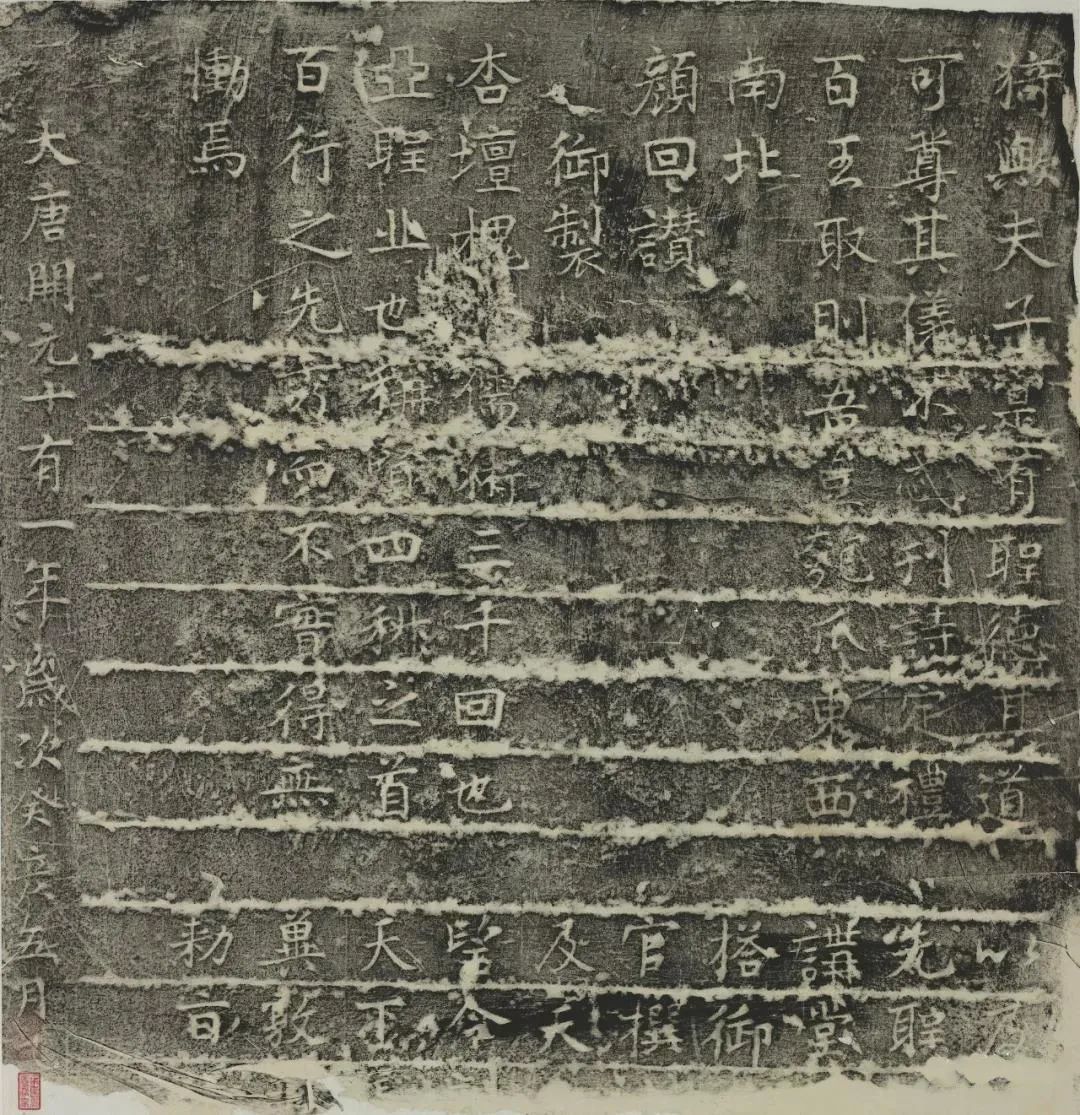 猗輿夫子是有聖德其道 以
可尊其儀不忒刊詩定禮 先聖
百王取則吾豈匏瓜東西 講堂
南北 搭御
顏回讚 官撰
御製 及天
杏壇槐儒術三千回也 令
亞聖丠也稱賢四科之首 天
百行之先而不實得無 冀敦
慟焉 勑旨
大唐開元十有一年歲次癸亥五月